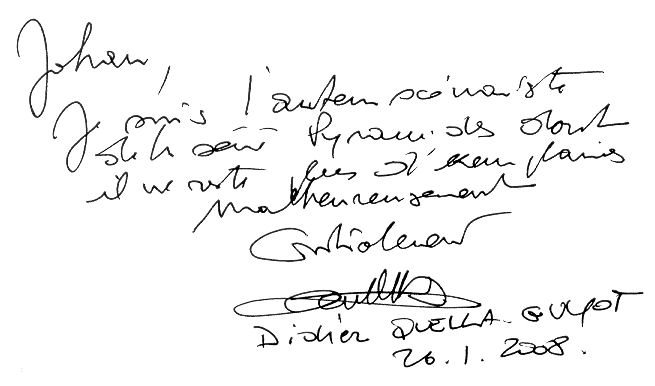 Johan,
Je suis l'auteur scénariste
de la série Pyramides dont
il ne reste plus d'exemplaires
malheureusement
Cordialement
Didier QUELLA-GUYOT
26.1.2008.